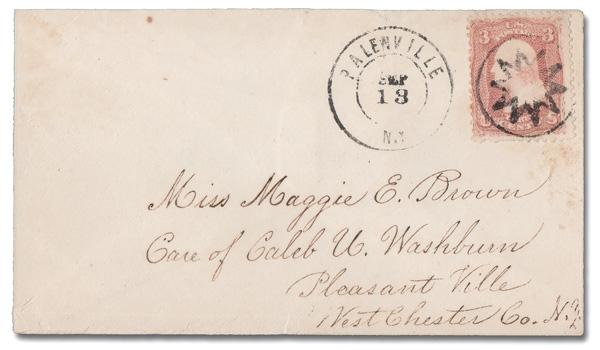 PALENVILLE
SEP
13
N.Y.
3 U.S. 3
POSTAGE
Miss Maggie E. Brown
Care of Caleb U. Washburn
Pleasant Ville
West Chester Co. N.Y.